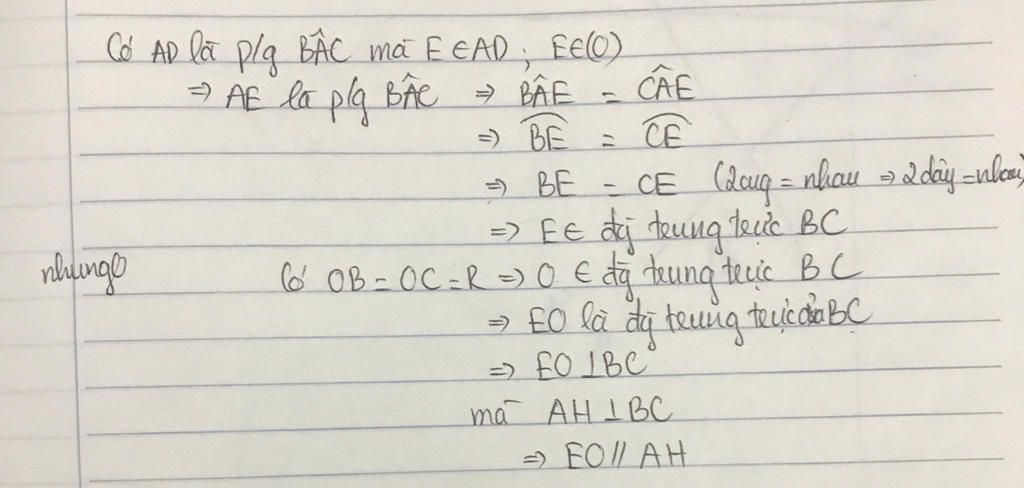 Có AD là p/g BÂC mà E ∈ AD, E ∈ (O)
⇒ AE là p/g BÂC ⇒ BÂE = CÂE
⇒ B͡E = C͡E
⇒ BE = CE (2 cug = nhau ⇒ 2 dây = nhau)
⇒ E ∈ đg trung trực BC
nhưng Có OB = OC = R ⇒ O ∈ đg trung trực BC
⇒ EO là đg trung trực của BC
⇒ EO ⊥ BC
mà AH ⊥ BC
⇒ EO // AH